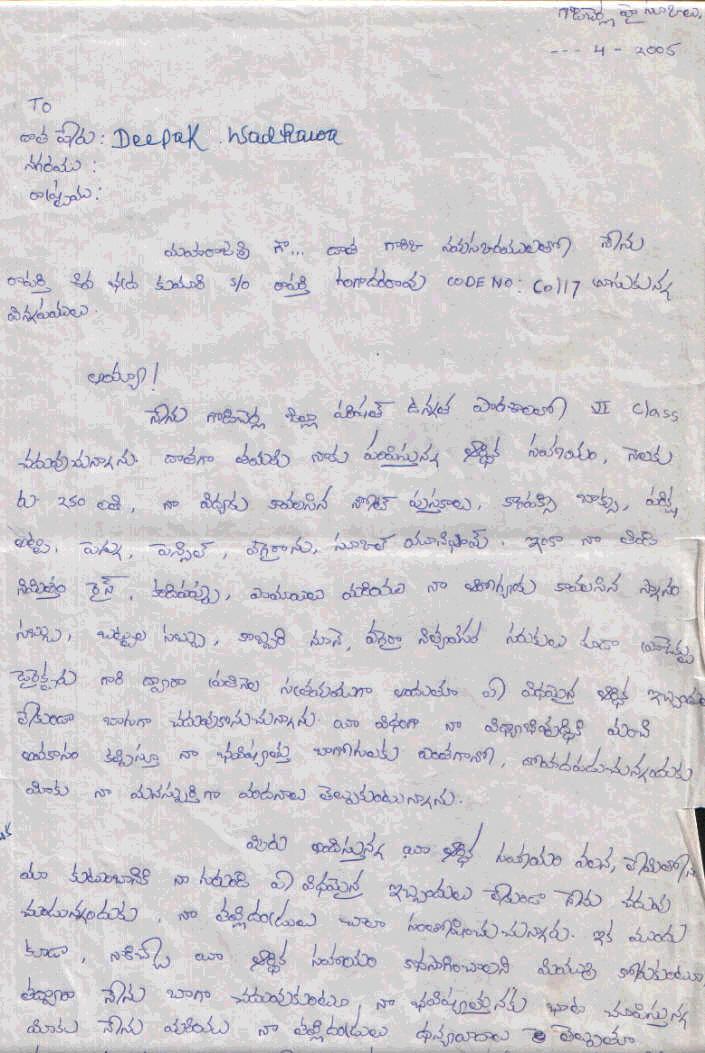 గాడిచర్ల హైస్కూలు.
--- 4 - 2005
TO
దాత పేరు : Deepak . Wadhawa
నగరము :
రాష్ట్రము :
మహారాజశ్రీ గౌ... దాత గారికి నమస్కారములతో నేను
శివ కుమారి S/O గంగాధరరావు CODE NO: Co117 వ్రాసుకున్న
విన్నపములు.
అయ్యా!
నేను గాడిచర్ల జిల్లా పరిషత్ ఉన్నత పాఠశాలలో VI Class
చదువుచున్నాను. దాతగా తమరు నాకు పంపిస్తున్న ఆర్థిక సహాయం, నెలకు
రు 250 లతో, నా చదువుకు కావలసిన నోట్ పుస్తకాలు, బాక్సు, పరీక్ష
అట్ట, పెన్ను, పెన్సిల్, వగైరాలు, స్కూల్ యూనిఫామ్. ఇంకా నా తిండి
నిమిత్తం రైస్, కందిపప్పు, మరియు నా ఆరోగ్యానికి కావలసిన స్నానం
సబ్బు, బట్టల సబ్బు, కొబ్బరి నూనె, వగైరా నిత్యావసర సరుకులు కూడా ప్రాజెక్టు
డైరెక్టరు గారి ద్వారా ప్రతినెల సక్రమముగా అందుతూ ఏ విధమైన ఆర్థిక ఇబ్బందులు
లేకుండా బాగుగా చదువుకొనుచున్నాను. యీ విధంగా నా విద్యాభివృద్ధికి మంచి
అవకాశం కల్పిస్తూ నా భవిష్యత్తు బాగోగులకు ఎంతగానో, తోడ్పడుచున్నందుకు
మీకు నా మనస్ఫూర్తిగా వందనాలు తెలుపుకుంటున్నాను.
మీరు అందిస్తున్న యీ ఆర్థిక సహాయం వలన, లేమితోనున్న
మా కుటుంబానికి నా నుండి ఏ విధమైన ఇబ్బందులు లేకుండా నేను చదువు
చున్నందుకు, నా తల్లిదండ్రులు చాలా సంతోషించుచున్నారు. ఇక ముందు
కూడా, నాకిచ్చే యీ ఆర్థిక సహాయం కొనసాగించాలని మిమ్ము కోరుకుంటూ,
తద్వారా నేను బాగా చదువుకుంటూ, నా భవిష్యత్తునకు బాట చూపిస్తున్న
మీకు నేను మరియు నా తల్లిదండ్రులు ధన్యవాదాలు తెలుపుతూ